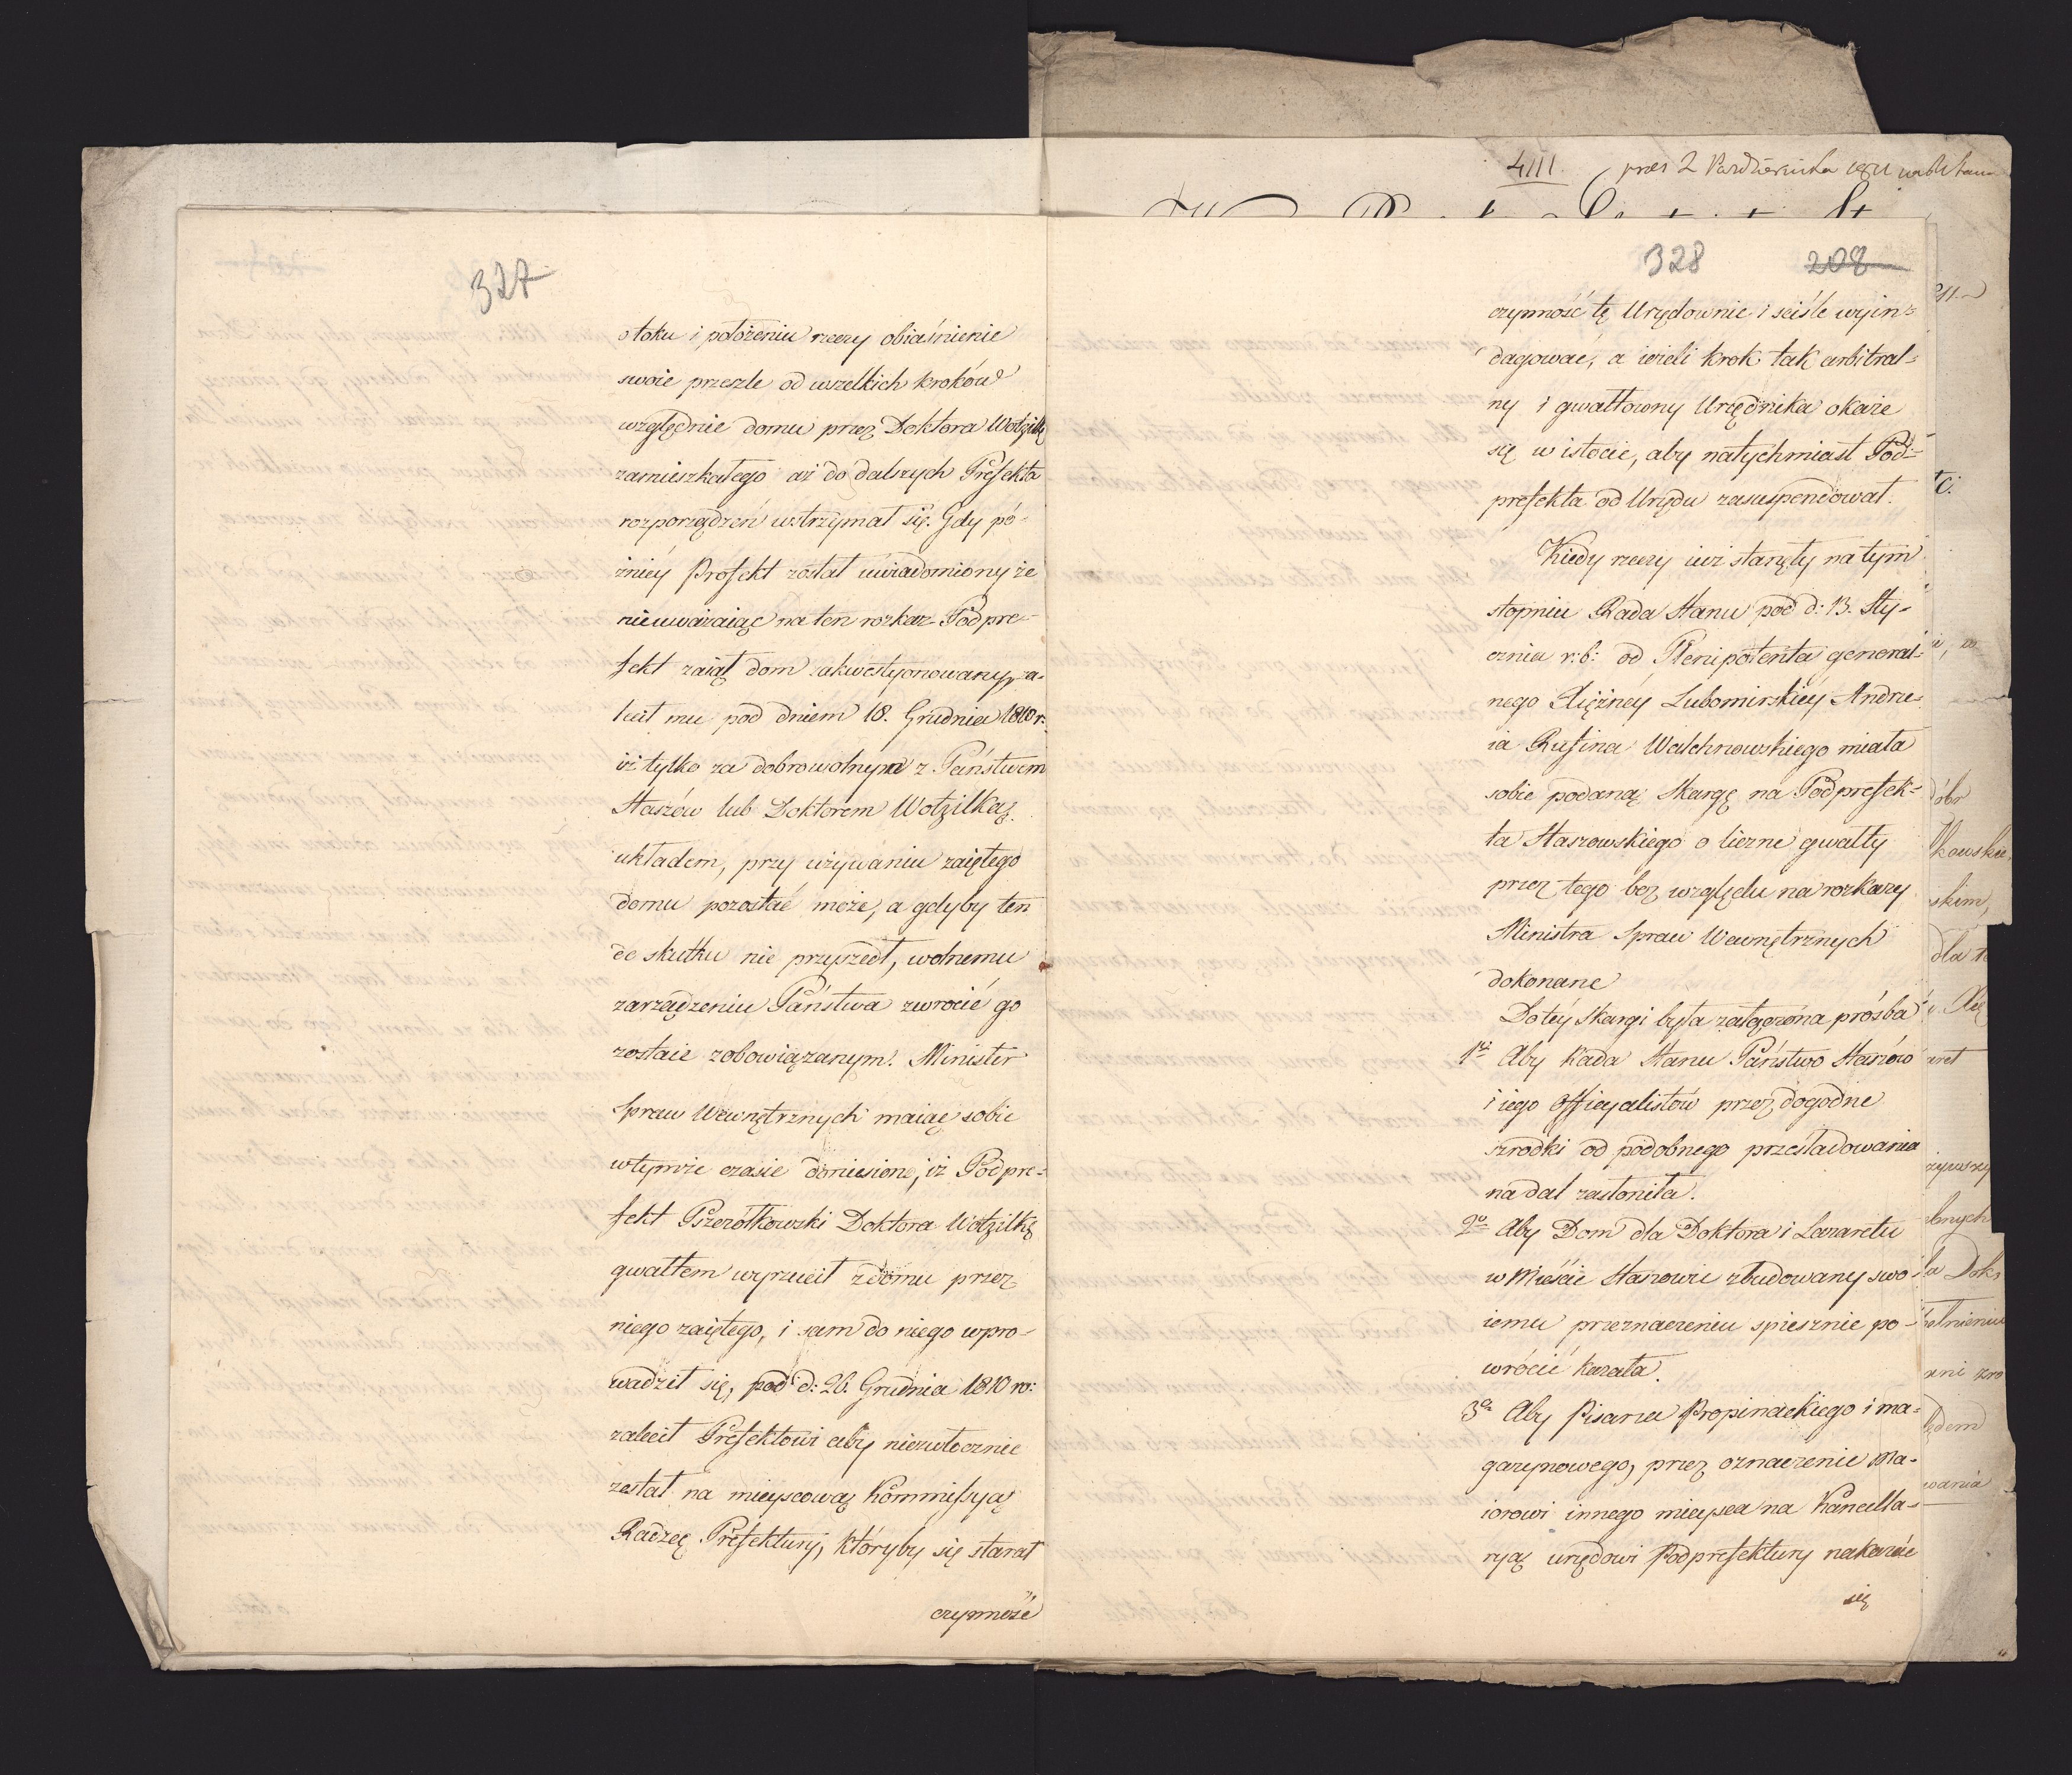 4111 prez 2 Października 1811
327
o toku i położeniu rzeczy obiaśnienie
swoie prześle od wszelkich kroków
względnie domu przez Doktora Wotzilkę
zamieszkałego aż do dalszych Prefekta
rozporządzeń wstrzymał się. Gdy pó-
źniéy Prefekt został uwiadomiony że
nieuważaiąc na ten rozkaz Podpre-
fekt zaiął dom zakwestyonowany, za-
lecił mu pod dniem 18. Grudnia 1810 r:
iż tylko za dobrowolnym z Państwem
Staszów lub Doktorem Wotzilką
układem, przy używaniu zaiętego
domu pozostać może, a gdyby ten
do skutku nie przyszedł, wolnemu
zarządzeniu Państwa zwrócić go
zostaie zobowiązanym. Minister
Spraw Wewnętrznych maiąc sobie
wtymże czasie doniesione, iż Podpre-
fekt Pszczółkowski Doktora Wotzilkę
gwałtem wyrzucił z domu przez
niego zaiętego, i sam do niego wpro-
wadził się, pod d: 26. Grudnia 1810 ro:
zalecił Prefektowi aby niezwłocznie
zesłał na mieyscową Kommissyą
Radzcę Prefektury, któryby się starał
czynność
328 208
czynność tę Urzędownie i ściśle wyin-
dagować, a ieżeli krok tak arbitral-
ny i gwałtowny Urzędnika okaże
się w istocie, aby natychmiast Pod-
prefekta od Urzędu zasuspendował.
Kiedy rzeczy iuż stanęły na tym
stopniu Rada Stanu pod d: 13. Sty-
cznia r: b: od Plenipotenta general-
nego Xiężnéy Lubomirskiéy Andrze-
ia Rufina Walchnowskiego miała
sobie podaną Skargę na Podprefek-
ta Staszowskiego o liczne gwałty
przez tego bez względu na rozkazy
Ministra Spraw Wewnętrznych
dokonane
Do téy Skargi była załączona prośba
1o Aby Rada Stanu Państwo Staszów
i iego Officyalistów przez dogodne
srodki od podobnego prześladowania
nadal zasłoniła.
2o Aby Dom dla Doktora i Lazaretu
w Mieście Staszowie zbudowany swo-
iemu przeznaczeniu spiesznie po-
wrócić kazała.
3o Aby Pisarza Propinackiego i ma-
gazynowego, przez oznaczenie Ma-
iorowi innego mieysca na Kancella-
ryą urzędowi Podprefektury nakaże
się